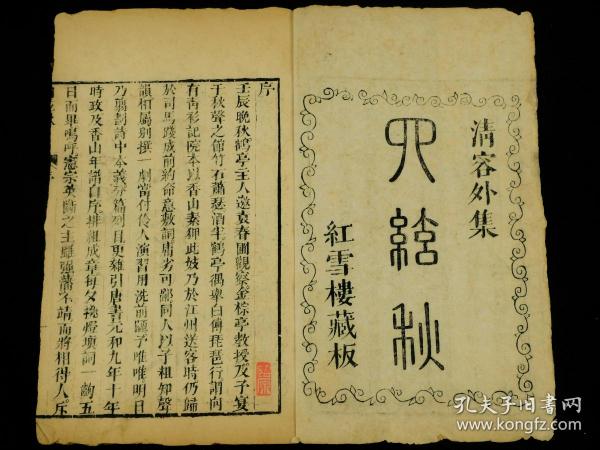 清容外集
四絃秋
紅雪樓藏板
序
壬辰晚秋鶴亭主人邀袁春圃觀察金棕亭教授及予宴
于秋聲之館竹石蕭瑟酒半鶴亭偶舉白傅琵琶行謂向
有青衫記院本以香山素狎此妓乃於江州送客時仍歸
於司馬踐成前約命意敷詞庸劣可鄙同人以予粗知聲
韻相屬別撰一劇當付伶人演習用洗前陋予唯唯明日
乃翦劃詩中本義分篇列目更雜引唐書元和九年十年
時政及香山年譜自序排組成章每夕挑燈填詞一齣五
日而畢嗚呼憲宗英斷之主雖強藩不靖而將相得人斥
孔夫子旧书网